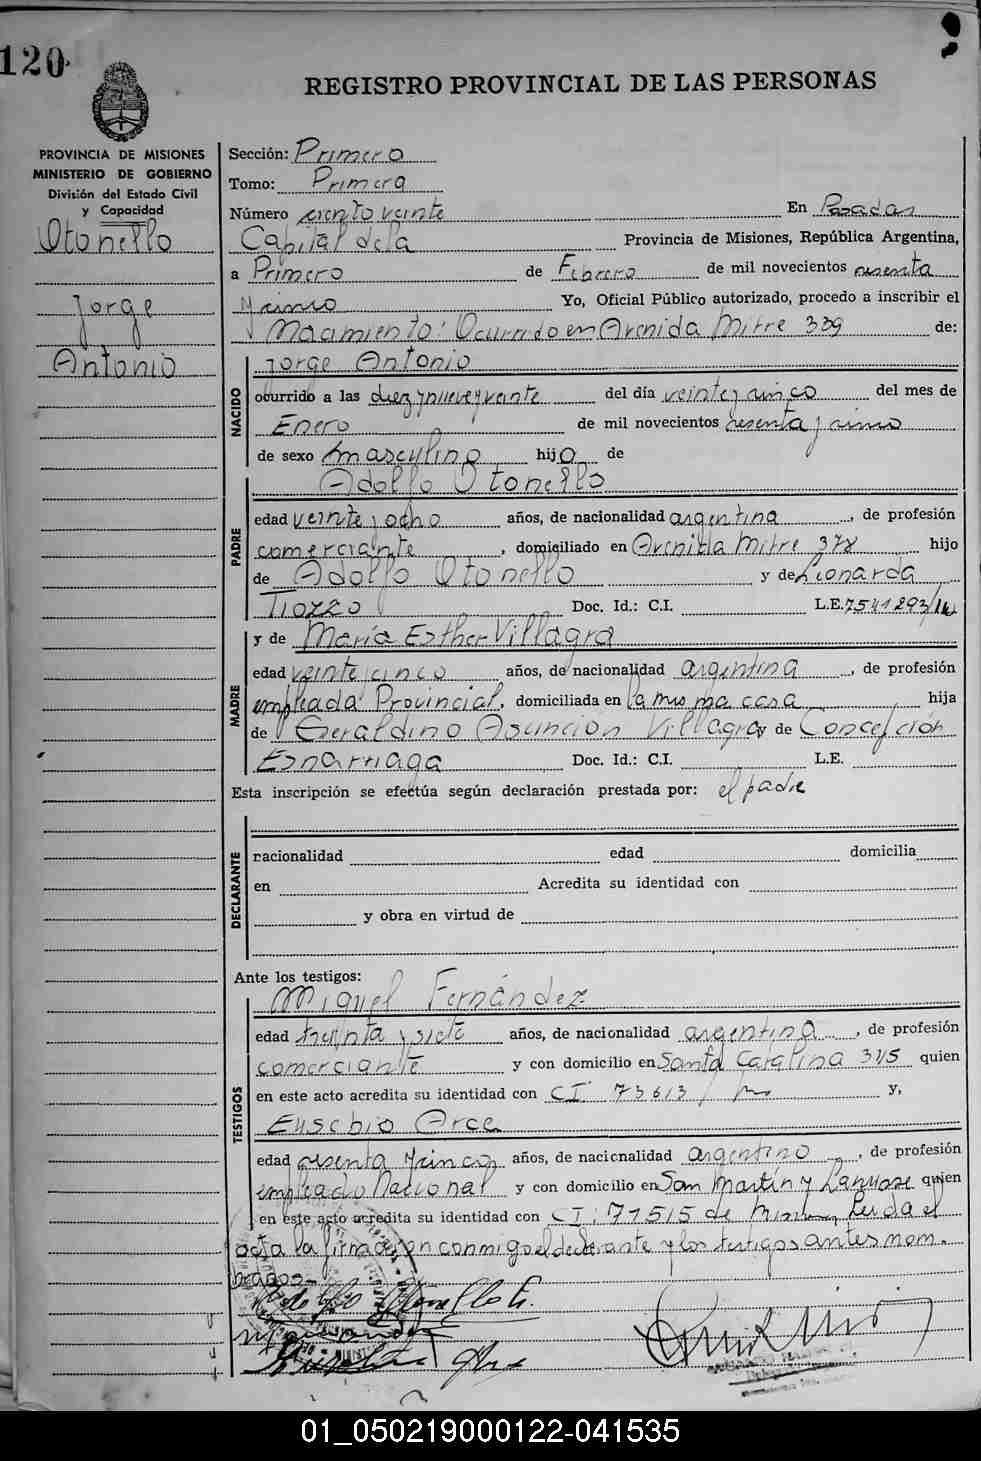 120
REGISTRO PROVINCIAL DE LAS PERSONAS
PROVINCIA DE MISIONES
MINISTERIO DE GOBIERNO
División del Estado Civil
y Capacidad
Otonello
Jorge
Antonio
Sección: Primero
Tomo: Primera
Número ciento veinte En Posadas
Capital de la Provincia de Misiones, República Argentina,
a Primero de Febrero de mil novecientos sesenta
y cinco Yo, Oficial Público autorizado, procedo a inscribir el
Nacimiento: Ocurrido en Avenida Mitre 339 de:
Jorge Antonio
NACIDO
ocurrido a las diez y nueve y veinte del día veinte y cinco del mes de
Enero de mil novecientos sesenta y cinco
de sexo masculino hijo de
Adolfo Otonello
PADRE
edad veinte y ocho años, de nacionalidad argentina, de profesión
comerciante, domiciliado en Avenida Mitre 378 hijo
de Adolfo Otonello y de Leonarda
Tiozzo Doc. Id.: C.I. L.E. 7541293
y de María Esther Villagra
MADRE
edad veinte cinco años, de nacionalidad argentina, de profesión
empleada Provincial, domiciliada en la misma casa hija
de Geraldino Asunción Villagra y de Concepción
Esnarriaga Doc. Id.: C.I. L.E.
Esta inscripción se efectúa según declaración prestada por: el padre
DECLARANTE
nacionalidad edad domicilia
en Acredita su identidad con
y obra en virtud de
Ante los testigos:
Miguel Fernández
TESTIGOS
edad treinta y siete años, de nacionalidad argentina, de profesión
comerciante y con domicilio en Santa Catalina 315 quien
en este acto acredita su identidad con CI 73613 y,
Eusebio Arce
edad sesenta y cinco años, de nacionalidad argentino, de profesión
empleado Nacional y con domicilio en San Martín y quien
en este acto acredita su identidad con CI: 71515 de Misiones Leida el
acta la firma con conmigo el declarante y los testigos antes nom.
brados-
01_050219000122-041535